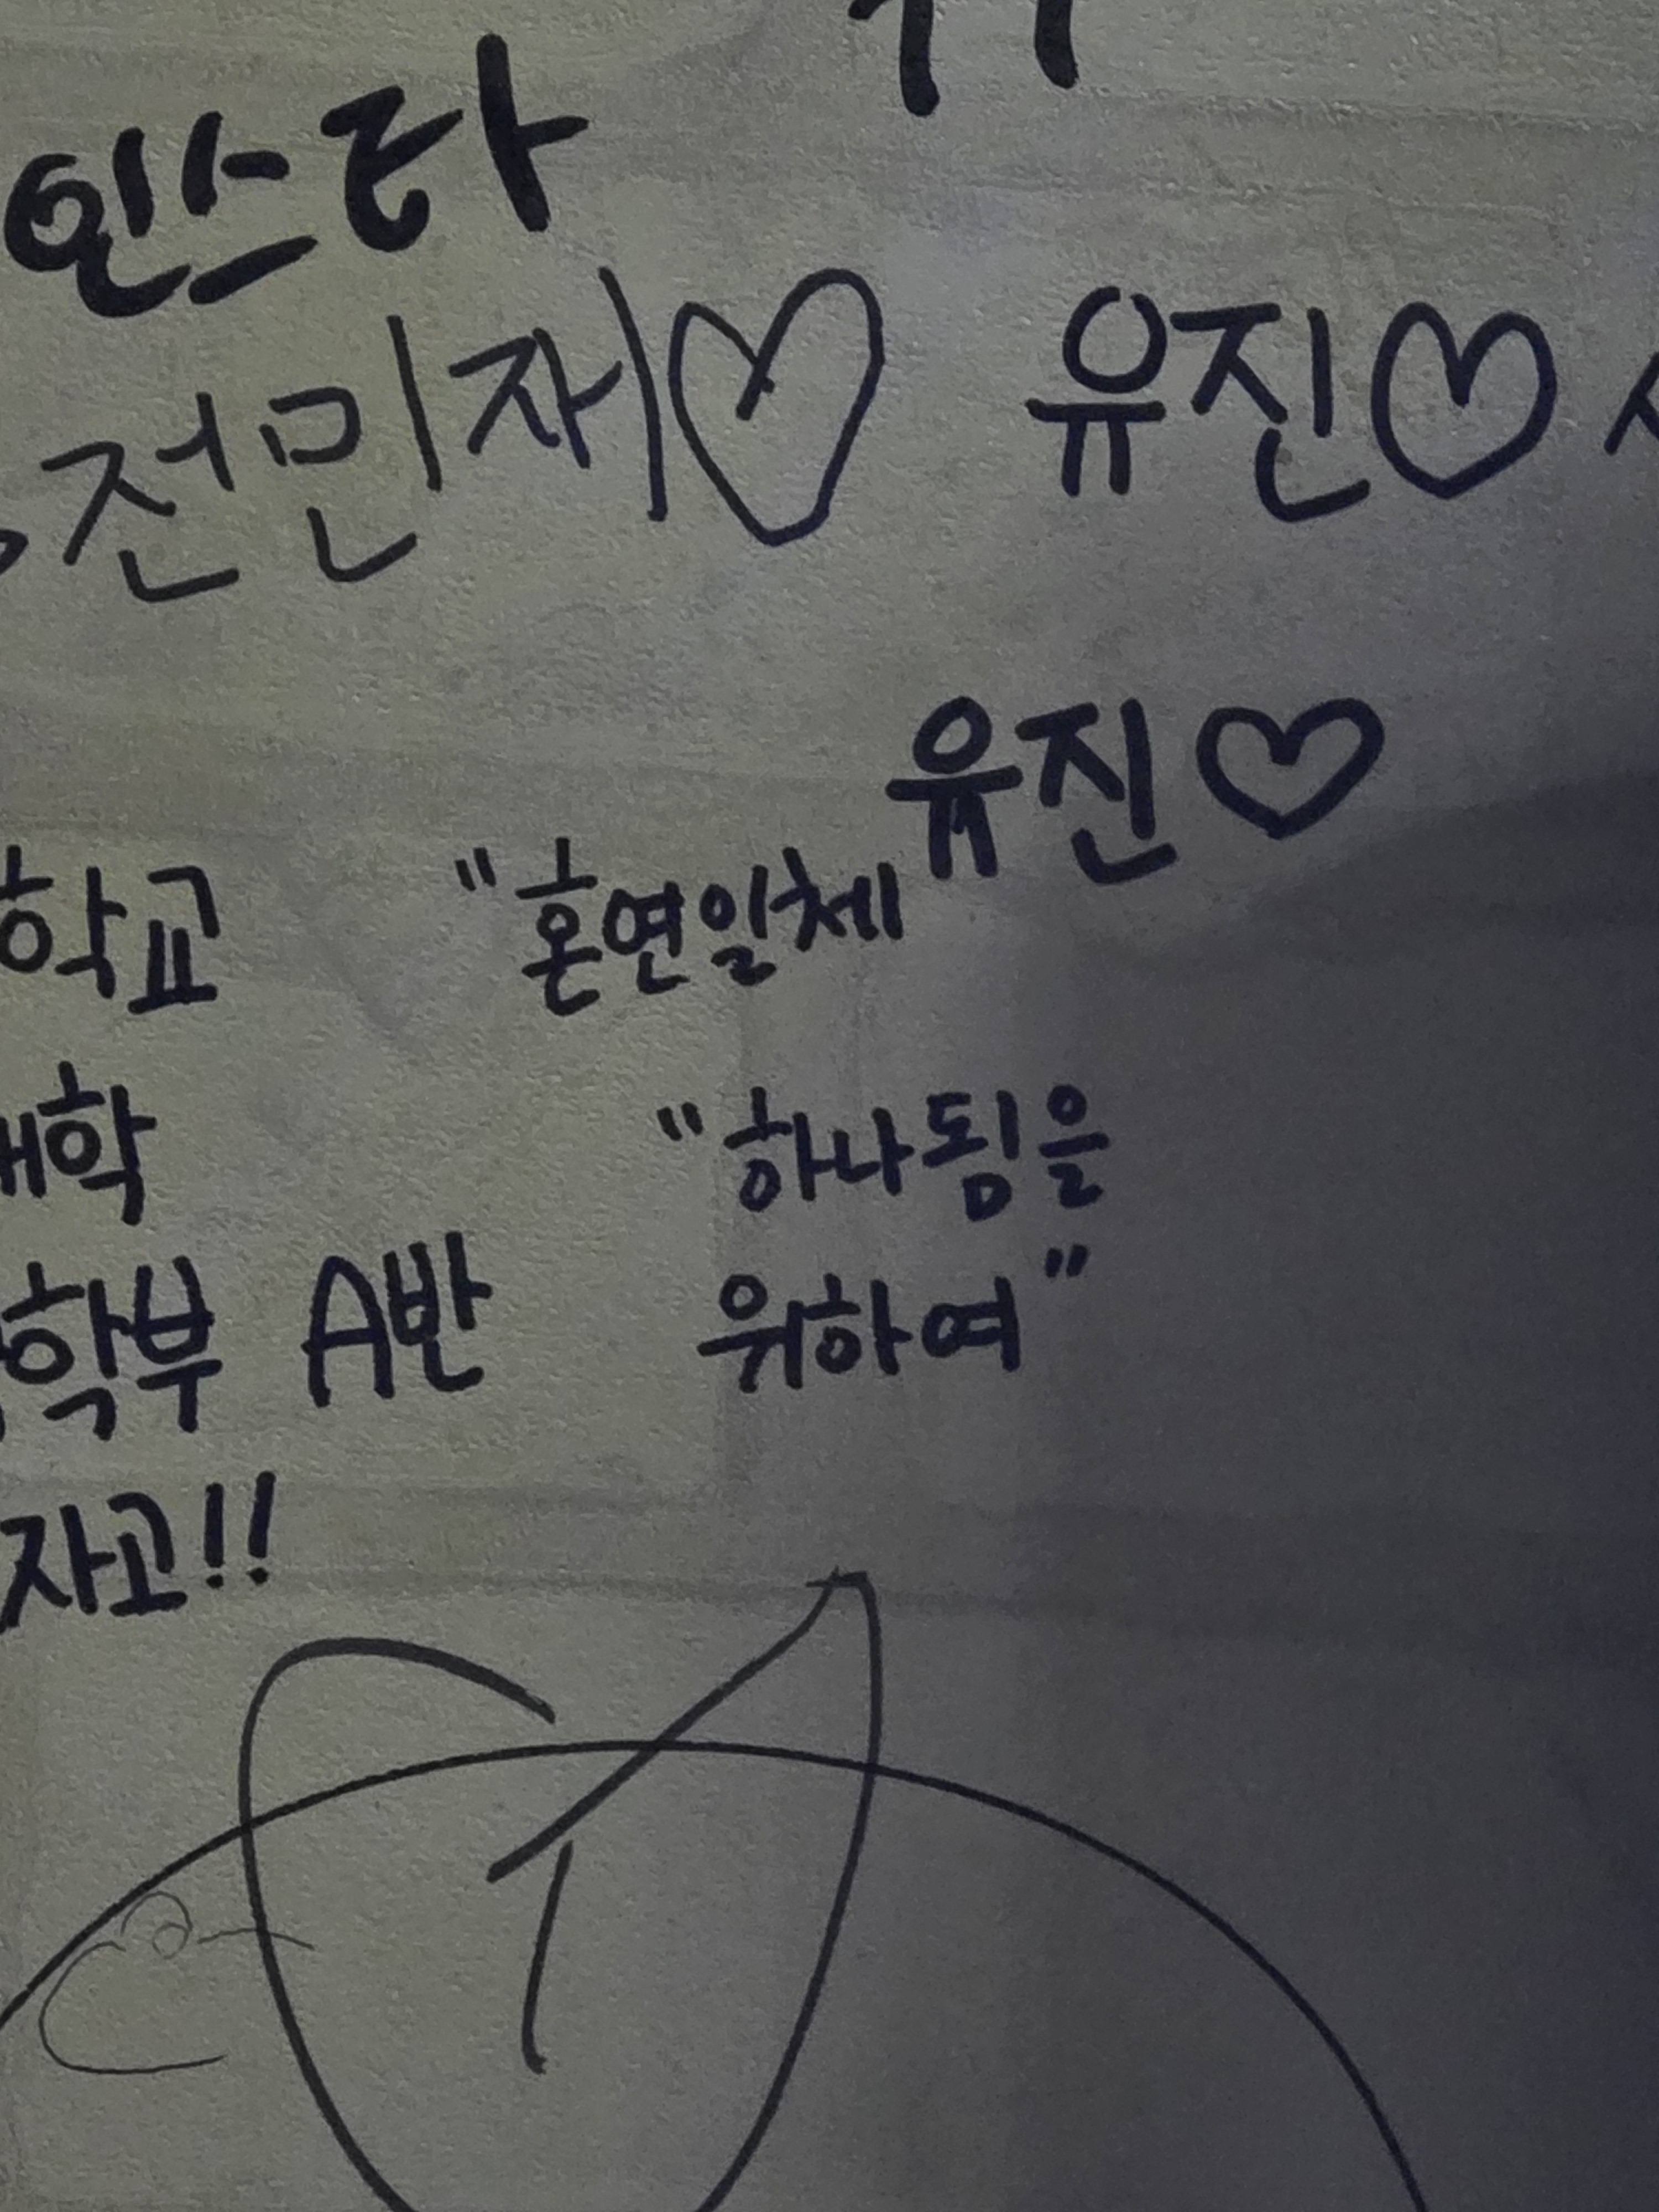 인스타
전민재♡ 유진♡
유진♡
학교 "혼연일체
대학 "하나됨을
학부 A반 위하여"
자고!!
T